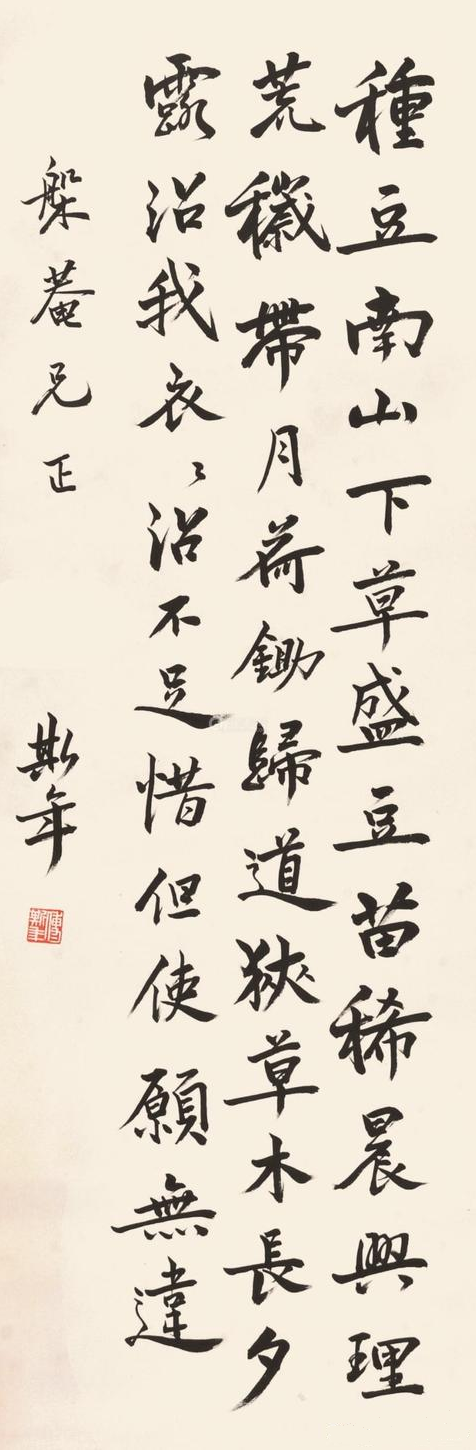 種豆南山下草盛豆苗稀晨興理
荒穢帶月荷鋤歸道狹草木長夕
露沾我衣〻沾不足惜但使願無違
槃菴兄正
斯年
傅斯年